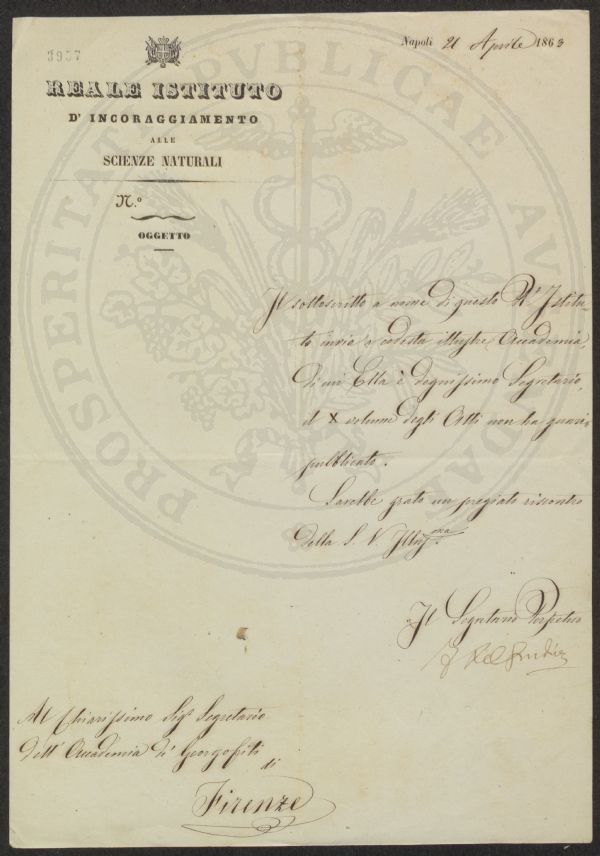 3957
Napoli 21 Aprile 1863
REALE ISTITUTO
D' INCORAGGIAMENTO
ALLE
SCIENZE NATURALI
N.º
OGGETTO
Il sottoscritto a nome di questo R.º Istitu-
to invia a codesta illustre Accademia,
di cui Ella è degnissimo Segretario,
il X volume degli Atti non ha guari
pubblicato.
Sarebbe grato un pregiato riscontro
della S. V. Illus.ma
Il Segretario Perpetuo
Al Chiarissimo Sig.r Segretario
dell' Accademia de' Georgofili
di
Firenze
PROSPERITATI PUBLICAE AUGENDAE